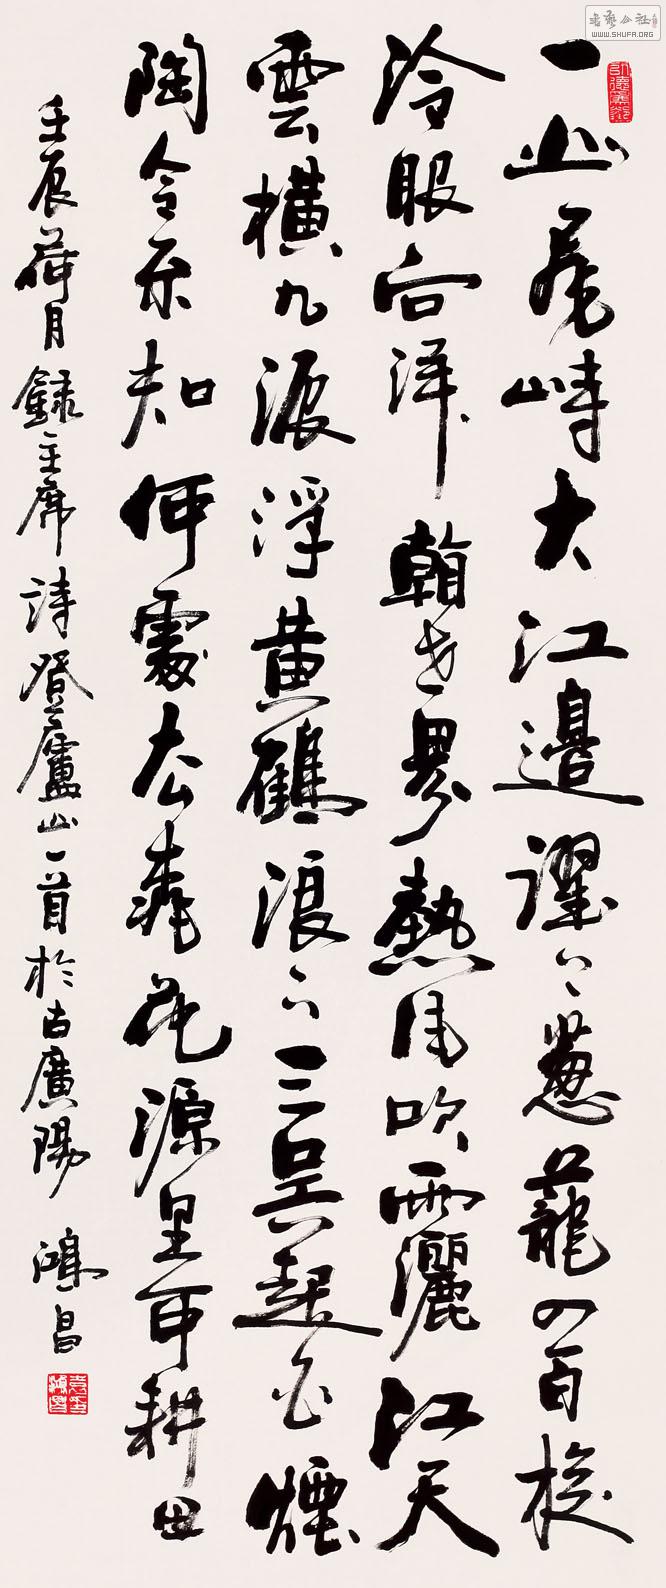 一山飛峙大江邊躍上蔥蘢四百旋
冷眼向洋看世界熱風吹雨灑江天
雲橫九派浮黃鶴浪下三吳起白煙
陶令不知何處去桃花源里可耕田
壬辰荷月錄主席詩登廬山一首於古廣陽 鴻昌
書藝公社
WWW.SHUFA.ORG